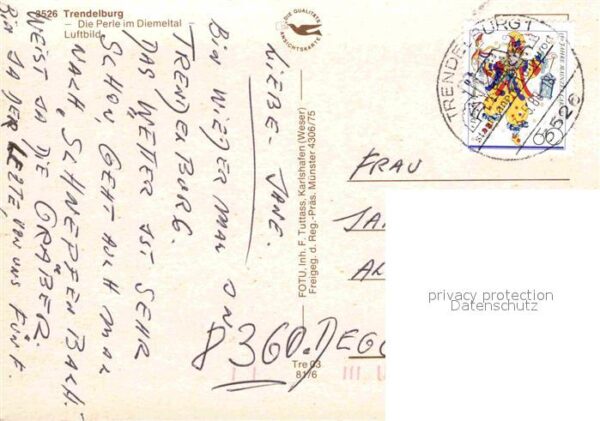 3526 Trendelburg
— Die Perle im Diemeltal —
Luftbild
DIE QUALITÄTS
ANSICHTSKARTE
LIEBE JANE.
BIN WIEDER MAL IN
TRENDELBURG.
DAS WETTER IST SEHR
SCHÖN, GEHT AUCH MAL
NACH SCHNEPFENBACH.
WEIST JA DIE GRÄBER.
BIN JA DER LETZTE VON UNS FÜNF.
FOTU, Inh. F. Tuttass, Karlshafen (Weser)
Freigeg. d. Reg.-Präs. Münster 4306/75
Tre 03
81/6
TRENDELBURG 1
3526
60
FRAU
JA
8360. DEGG
privacy protection
Datenschutz